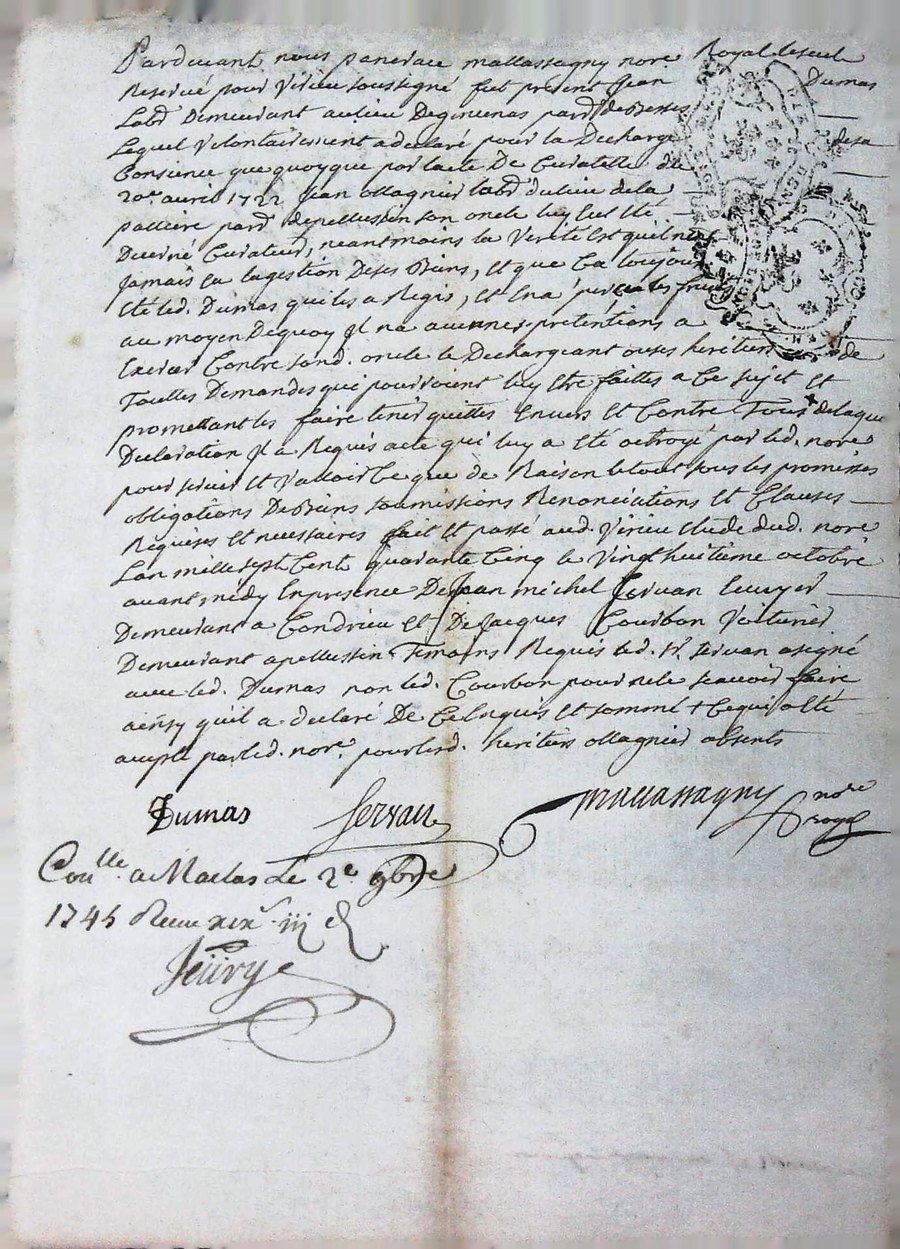 Pardevant nous pancrace mallassagny nore Royal leseul
Reservé pour Virieu soussigné fut present Jean Dumas
Labr Demeurant aulieu Degimenas parr. de Besses
Lequel Volontairement a declaré pour la Decharge desa
Consience que quoyque par lacte De Curatelle du
20e. avril 1722 Jean ollagnier labr dulieu dela
parr. depellussin son oncle luy eut été
Curateur, neantmoins la Verité est quil nen
Jamais eu lagestion Deses Biens, et que Ca toujours
été led. Dumas qui les a Regis, et en a perçu les fruits
au moyen Dequoy Il na aucunes pretentions a
Exercer Contre sond. oncle le Dechargeant ouses heritiers de
Touttes Demandes qui pourroient luy être faittes a Ce sujet et
promettant les faire tenir quittes Envers et Contre Tous delaque
Declaration Il a Requis acte qui luy a été octroyé par led. nore
pour servir et Valloir Ce que de Raison le tout sous les promesses
obligations De Biens soumissions Renonciations et Clauses
Requises et necessaires fait et passé aud. Virieu Etude dud. nore
Lan mille sept Cent quarante Cinq le Vingt huitieme octobre
avant midy En presence De Jean michel Servan Ecuyer
Demeurant a Condrieu et De Jacques Courbon Voiturier
Demeurant a pellussin Temoins Requis led. sr. servan a signé
avec led. Dumas non led. Courbon pour ne le scavoir faire
ainsy quil a declaré De Ce Enquis et sommé + Ce qui a été
accepté par led. nore. pour lesd. heritiers ollagnier absents
Dumas Servan mallassagny nore
royal
Conlle. a Maclas Le 2e 9bre
1745 Receu